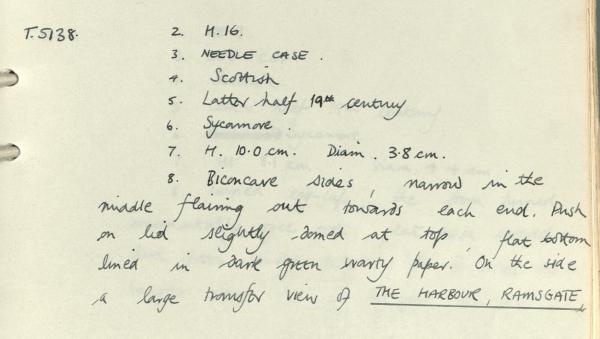 T.5138. 2. H.16.
3. NEEDLE CASE.
4. Scottish
5. Latter half 19th century
6. Sycamore.
7. H. 10.0 cm. Diam. 3.8 cm.
8. Biconcave sides, narrow in the
middle flaring out towards each end. Push
on lid slightly domed at top, flat bottom
lined in dark green warty paper. On the side
a large transfer view of THE HARBOUR, RAMSGATE